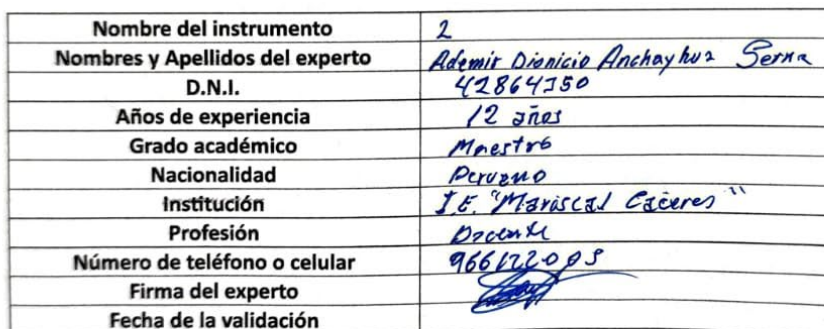 Nombre del instrumento 2
Nombres y Apellidos del experto Ademir Dionicio Anchayhua Serna
D.N.I.
Años de experiencia 12 años
Grado académico Maestro
Nacionalidad Peruano
Institución I.E. "Mariscal Cáceres"
Profesión Docente
Número de teléfono o celular
Firma del experto
Fecha de la validación